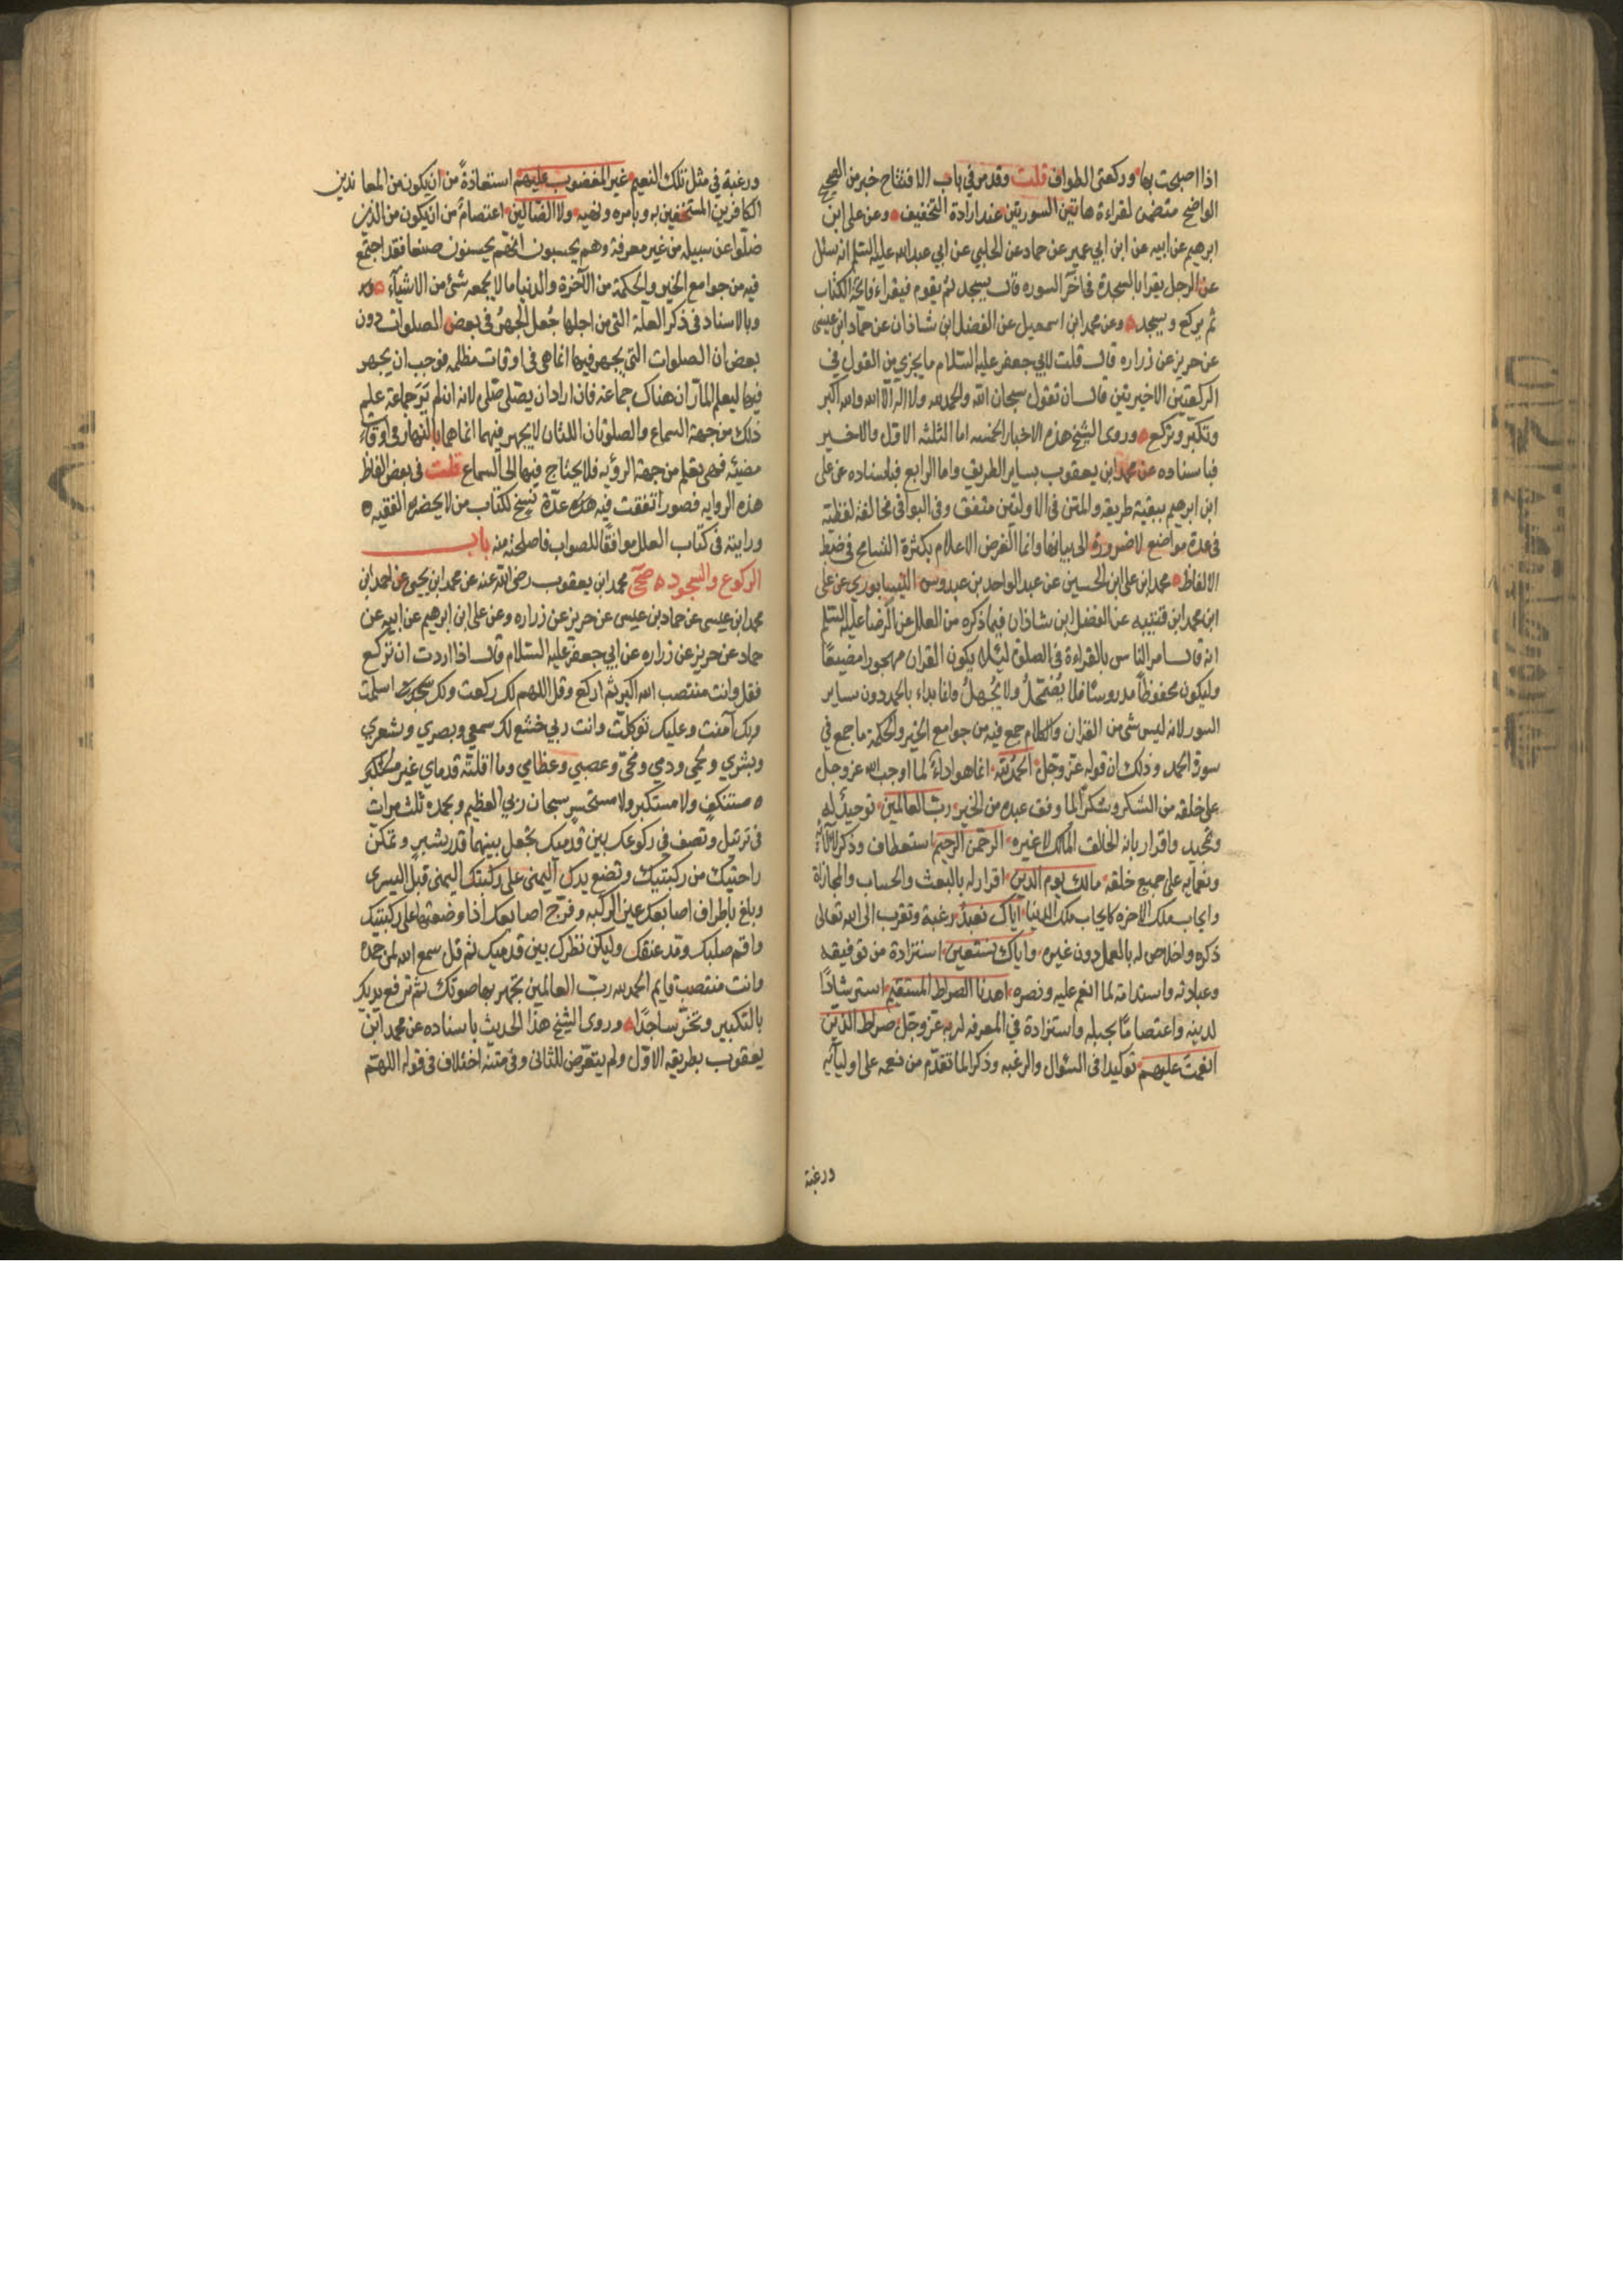 اذا اصبحت بها وركعتى الطواف قلت وقد مر فى باب الافتتاح خبر من الصحيح
الواضح متضمن لقراءة هاتين السورتين عند ارادة التخفيف وعن على ابن
ابرهيم عن ابيه عن ابن ابي عمير عن حماد عن الحلبي عن ابي عبد الله عليه السلم انه سئل
عن الرجل يقرا بالسجدة فى اخر السوره قال يسجد ثم يقوم فيقراء فاتحة الكتاب
ثم يركع ويسجد وعن محمد ابن اسمعيل عن الفضل ابن شاذان عن حماد ابن عيسى
عن حريز عن زراره قال قلت لابي جعفر عليه السلام ما يجزي من القول في
الركعتين الاخيرتين قال ان تقول سبحان الله والحمد لله ولا اله الا الله والله اكبر
وتكبر وتركع وروى الشيخ هذه الاخبار الخمسه اما الثلثه الاول والاخير
فباسناده عن محمد ابن يعقوب بساير الطريق واما الرابع فباسناده عن على
ابن ابرهيم ببقية طريقه والمتن فى الاولتين متفق وفى البواقى مخالفة لفظية
فى عدة مواضع لا ضرورة الى بيانها وانما الغرض الاعلام بكثرة التسامح فى ضبط
الالفاظ محمد ابن على ابن الحسين عن عبد الواحد بن عبدوس النيسابوري عن على
ابن محمد ابن قتيبه عن الفضل ابن شاذان فيما ذكره من العلل عن الرضا عليه السلم
انه قال امر الناس بالقراءة فى الصلوة لئلا يكون القران مهجورا مضيعًا
وليكون محفوظاً مدروسًا فلا يضمحلُ ولا يُجهلُ وانما بداء بالحمد دون ساير
السور لانه ليس شى من القران والكلام جمع فيه من جوامع الخير والحكمة ما جمع في
سورة الحمد وذلك ان قوله عز وجل الحمد لله انما هو اداءً لما اوجب الله عز وجل
على خلقه من الشكر وشكرًا لما وفق عبده من الخير رب العالمين توحيدٌ له
وتحميد واقرار بانه الخالق المالك لا غيره الرحمن الرحيم استعطاف وذكر لالائه
ونعمايه على جميع خلقه مالك يوم الدين اقرار له بالبعث والحساب والمجازاة
وايجاب ملك الاخره كايجاب ملك الدنيا اياك نعبد رغبة وتقرب الى الله تعالى
ذكره واخلاص له بالعمل دون غيره واياك نستعين استزادة من توفيقه
وعبادته واستدامة لما انعم عليه ونصره اهدنا الصراط المستقيم استرشادًا
لدينه واعتصامًا بحبله واستزادة في المعرفه لربه عز وجل صراط الذين
انعمت عليهم توكيدا فى السئوال والرغبه وذكرا لما تقدّم من نعمه على اوليآئه
ورغبة
ورغبة فى مثل تلك النعيم غير المغضوب عليهم استعاذةً من ان يكون من المعاندين
الكافرين المستخفين به وبامره ونهيه ولا الضالين اعتصامً من ان يكون من الذين
ضلوا عن سبيله من غير معرفة وهم يحسبون انهم يحسنون صنعا فقد اجتمع
فيه من جوامع الخير والحكمة من الآخرة والدنيا ما لا يجمعه شئ من الاشيآء
وبالاسناد فى ذكر العلة التى من اجلها جُعل الجهرُ فى بعض الصلوات دون
بعض ان الصلوات التي يجهر فيها انما هى فى اوقات مظلمه فوجب ان يجهر
فيها ليعلم المارّ ان هناك جماعه فان اراد ان يصلى صلى لانه ان لم ير جماعة علم
ذلك من جهة السماع والصلوتان اللتان لا يجهر فيهما انما هما بالنهار فى اوقات
مضيئه فهى تعلم من جهة الرؤيه فلا يحتاج فيها الى السماع قلت فى بعض الفاظ
هذه الروايه قصور اتفقت فيه عدّة نسخ لكتاب من لا يحضره الفقيه
ورايته فى كتاب العلل موافقًا للصواب فاصلحته منه باب
الركوع والسجود صحي محمد ابن يعقوب رضى الله عنه عن محمد ابن يحيى عن احمد ابن
محمد ابن عيسى عن حماد بن عيسى عن حريز عن زراره وعن على ابن ابرهيم عن ابيه عن
حماد عن حريز عن زراره عن ابي جعفر عليه السلام قال اذا اردت ان تركع
فقل وانت منتصب الله اكبر ثم اركع وقل اللهم لك ركعت ولك اسلمت
وبك آمنت وعليك توكلت وانت ربي خشع لك سمعي وبصري وشعري
وبشري ولحمي ودمي ومخى وعصبي وعظامي وما اقلته قدماي غير
مستنكفٍ ولا مستكبر ولا مستحسرٍ سبحان ربي العظيم وبحمده ثلث مرات
فى ترتيل وتصف فى ركوعك بين قدميك تجعل بينهما قدر شبر وتمكن
راحتيك من ركبتيك وتضع يدك اليمنى على ركبتك اليمنى قبل اليسرى
وبلغ باطراف اصابعك عين الركبه وفرج اصابعك اذا وضعتها على ركبتيك
واقم صلبك ومد عنقك وليكن نظرك بين قدميك ثم قل سمع الله لمن حمده
وانت منتصب قايم الحمد لله رب العالمين تجهر بها صوتك ثم ترفع يديك
بالتكبير وتخرّ ساجدًا وروى الشيخ هذا الحديث باسناده عن محمد ابن
يعقوب بطريقه الاوّل ولم يتعرّض للثانى وفى متنه اختلاف فى قوله اللهم